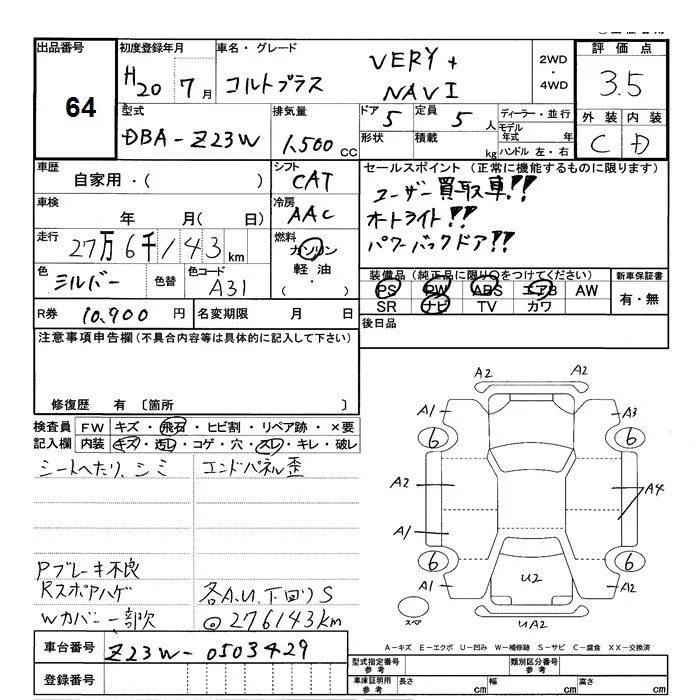 出品番号
64
初度登録年月
H20 7月
車名・グレード
コルトプラス VERY + NAVI
2WD
・
4WD
評価点
3.5
外装 内装
C D
型式
DBA-Z23W
排気量
1,500 CC
ドア
5
定員
5人
形状
積載
kg
ディーラー・並行
モデル年式 年
ハンドル 左・右
車歴
自家用・( )
シフト
CAT
車検
年 月( 日)
冷房
AAC
走行
27万6千143km
燃料
ガソリン
軽油
・( )
色
シルバー
色替
色コード
A31
R券
10,900円
名変期限 月 日
セールスポイント(正常に機能するものに限ります)
ユーザー買取車!!
オートライト!!
パワーバックドア!!
装備品(純正品に限り○をつけてください)
PS PW ABS エアB AW
SR ナビ TV カワ
新車保証書
有・無
後日品
注意事項申告欄(不具合内容等は具体的に記入して下さい)
修復歴 有 〔箇所 〕
検査員記入欄
FW キズ・飛石・ヒビ割・リペア跡・×要
内装 キズ・汚レ・コゲ・穴・スレ・キレ・破レ
シートヘたり、シミ
エンドパネル歪
Pブレーキ不良
Rスポアハゲ
Wカバー一部欠
各A.U.下回りS
◎276143km
車台番号
Z23W-0503429
登録番号
A2 A2
A1 A3
6 6
A2 A4
A1
6 6
A1 A2
U2
スペア
UA2
A-キズ E-エクボ U-凹み W-補修跡 S-サビ C-腐食 XX-交換済
型式指定番号 参考
類別区分番号 参考
車庫証明用 参考
長さ cm
幅 cm
高さ cm